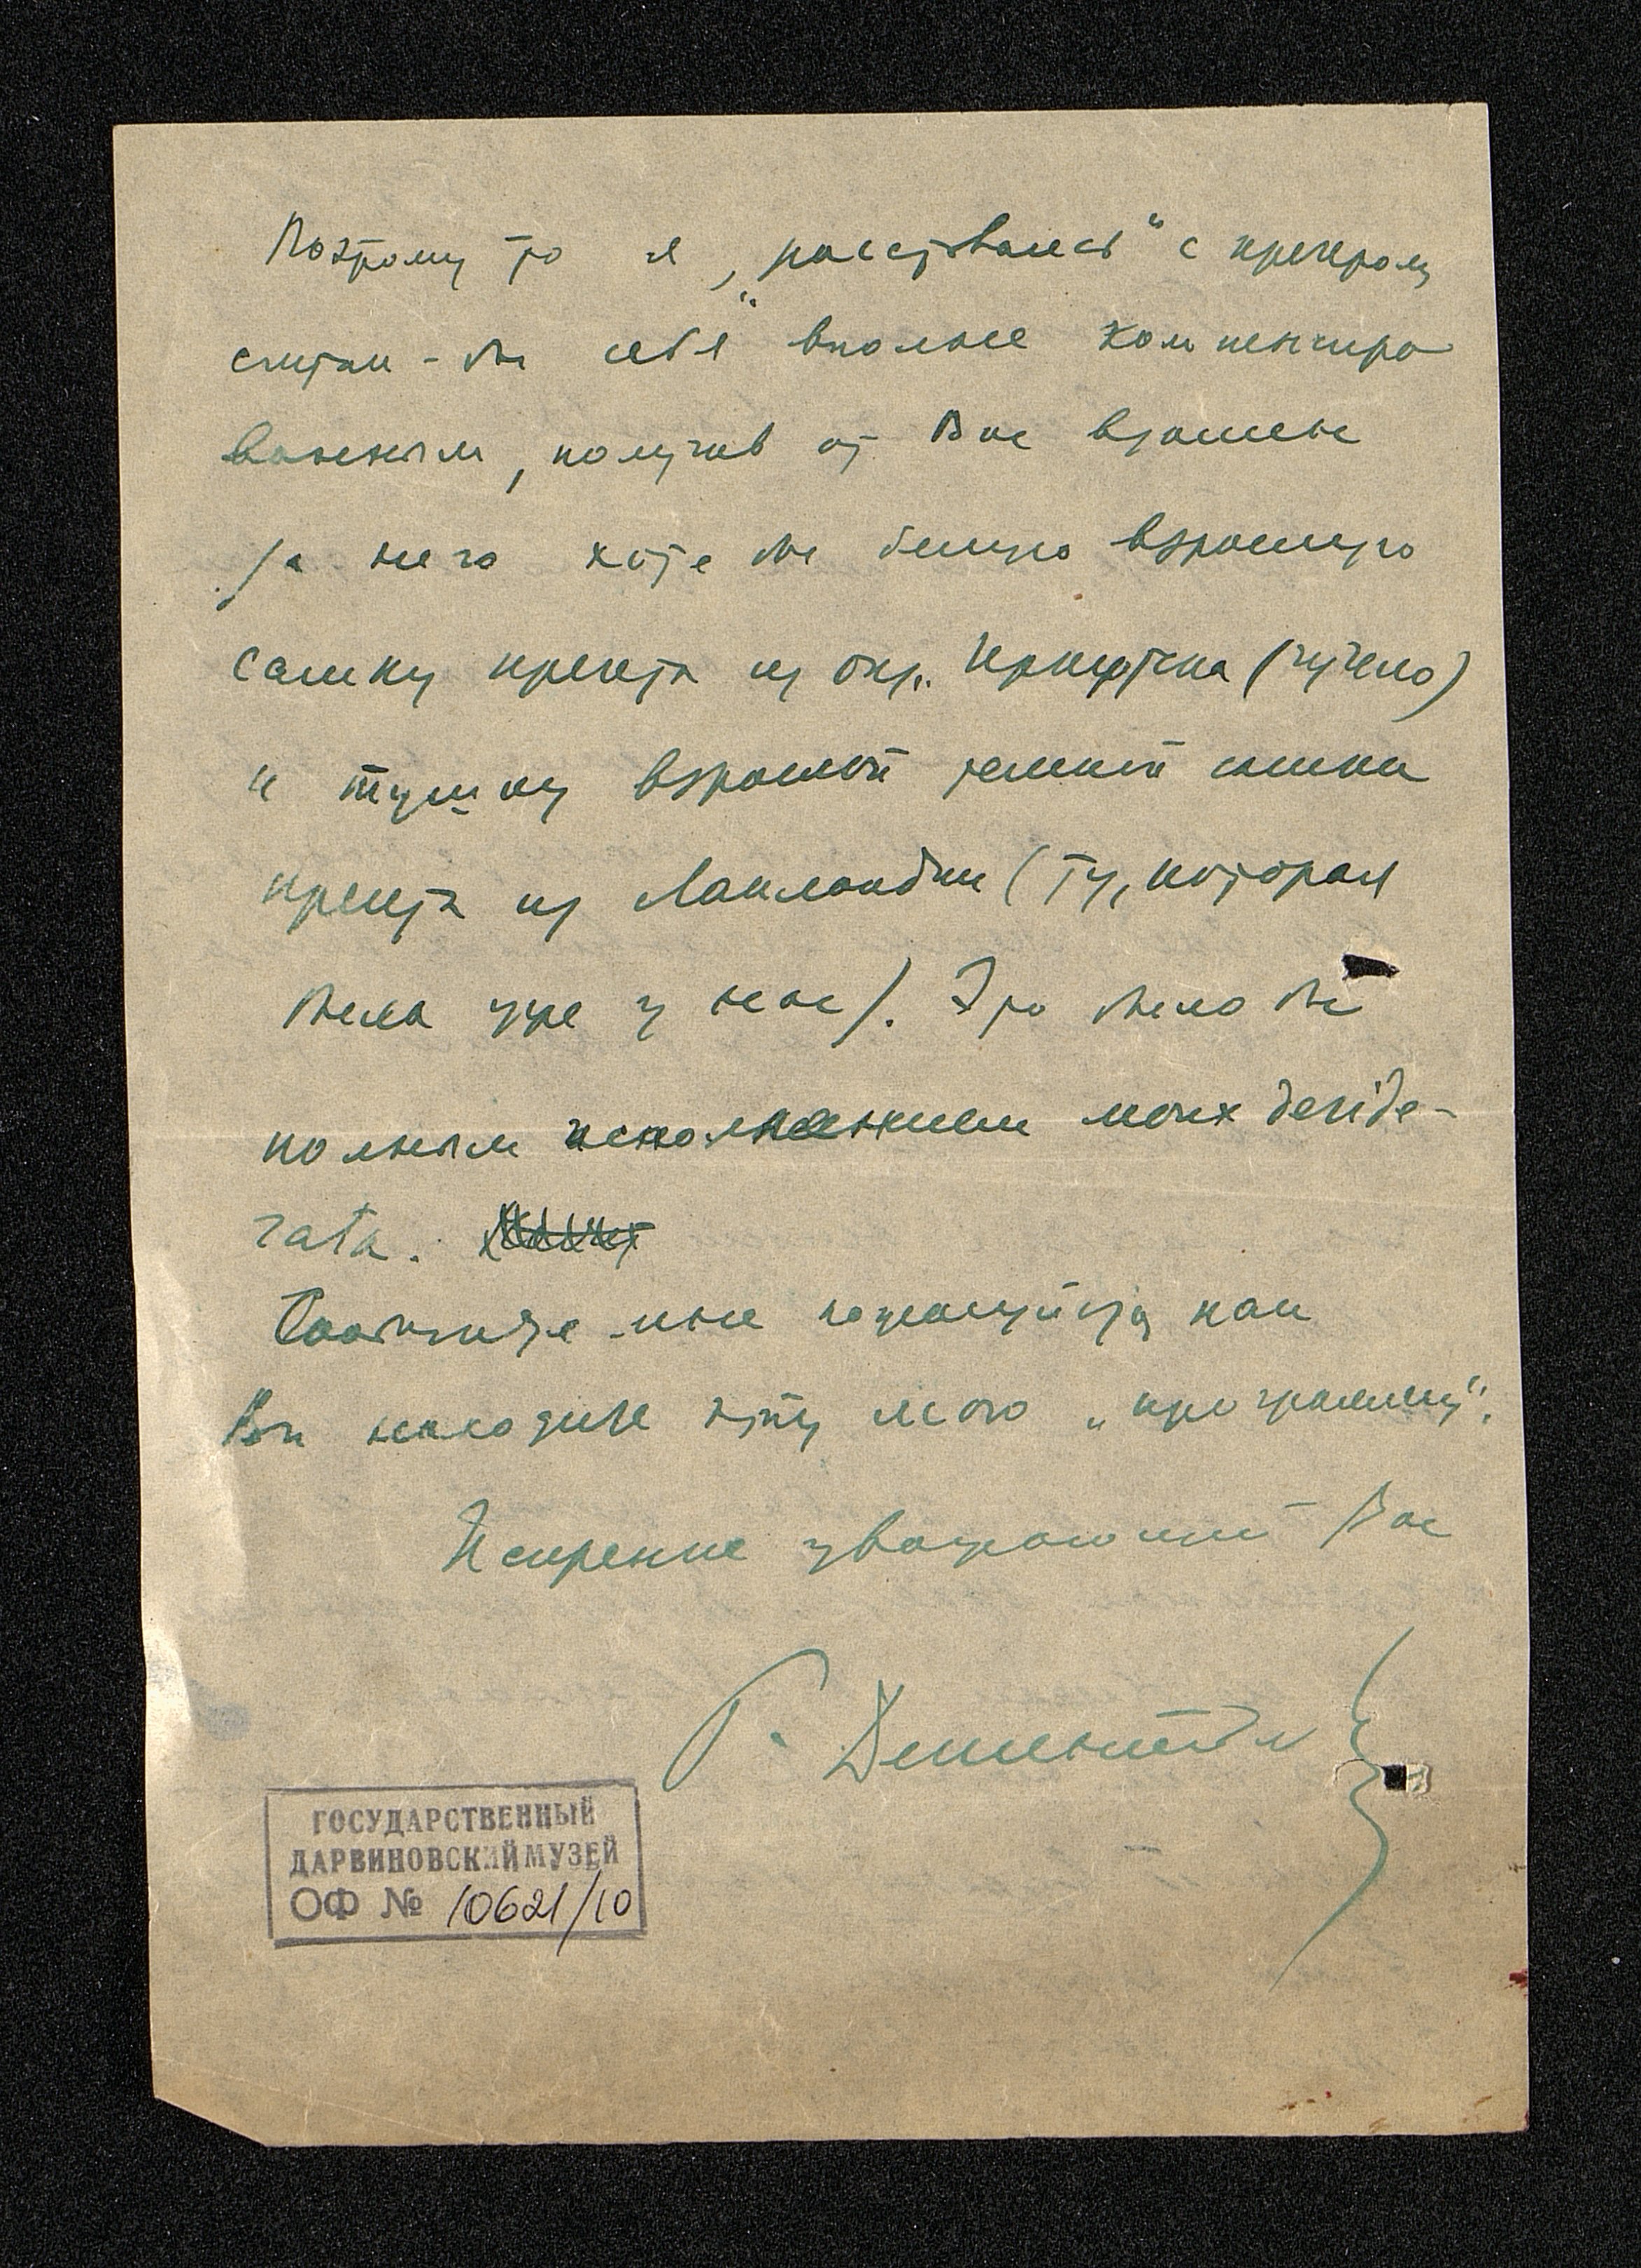 Поэтому то я, „расставаясь“ с кречетом
считал-бы себя вполне компенсиро
ванным, получив от Вас взамен
за него хотя бы белую взрослую
самку кречета из окр. Иркутска (чучело)
и тушку взрослой темной самки
кречета из Лапландии (ту, которая
была уже у нас). Это было бы
полным исполнением моих deside-
rata.
Сообщите мне пожалуйста как
Вы находите эту мою „программу“.
Искренне уважающий Вас
Г. Дементьев
ГОСУДАРСТВЕННЫЙ
ДАРВИНОВСКИЙ МУЗЕЙ
ОФ № 10621/10